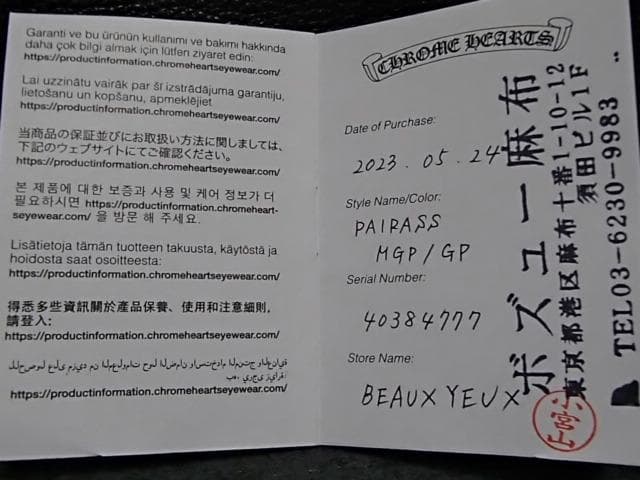 Garanti ve bu ürünün kullanımı ve bakımı hakkında
daha çok bilgi almak için lütfen ziyaret edin:
https://productinformation.chromeheartseyewear.com/
Lai uzzinātu vairāk par šī izstrādājuma garantiju,
lietošanu un kopšanu, apmeklējiet
https://productinformation.chromeheartseyewear.com/
当商品の保証並びにお取扱い方法に関しましては、
下記のウェブサイトにてご確認ください。
https://productinformation.chromeheartseyewear.com/
본 제품에 대한 보증과 사용 및 케어 정보가 더
필요하시면 https://productinformation.chromeheart-
seyewear.com/ 을 방문 해 주세요.
Lisätietoja tämän tuotteen takuusta, käytöstä ja
hoidosta saat osoitteesta:
https://productinformation.chromeheartseyewear.com/
得悉多些資訊關於產品保養、使用和注意細則,
請登入:
https://productinformation.chromeheartseyewear.com/
https://productinformation.chromeheartseyewear.com/
CHROME HEARTS
Date of Purchase:
2023.05.24
Style Name/Color:
PAIRASS
MGP/GP
Serial Number:
40384777
Store Name:
BEAUX YEUX
ボズュー麻布
東京都港区麻布十番1-10-12
須田ビル1F
TEL03-6230-9983